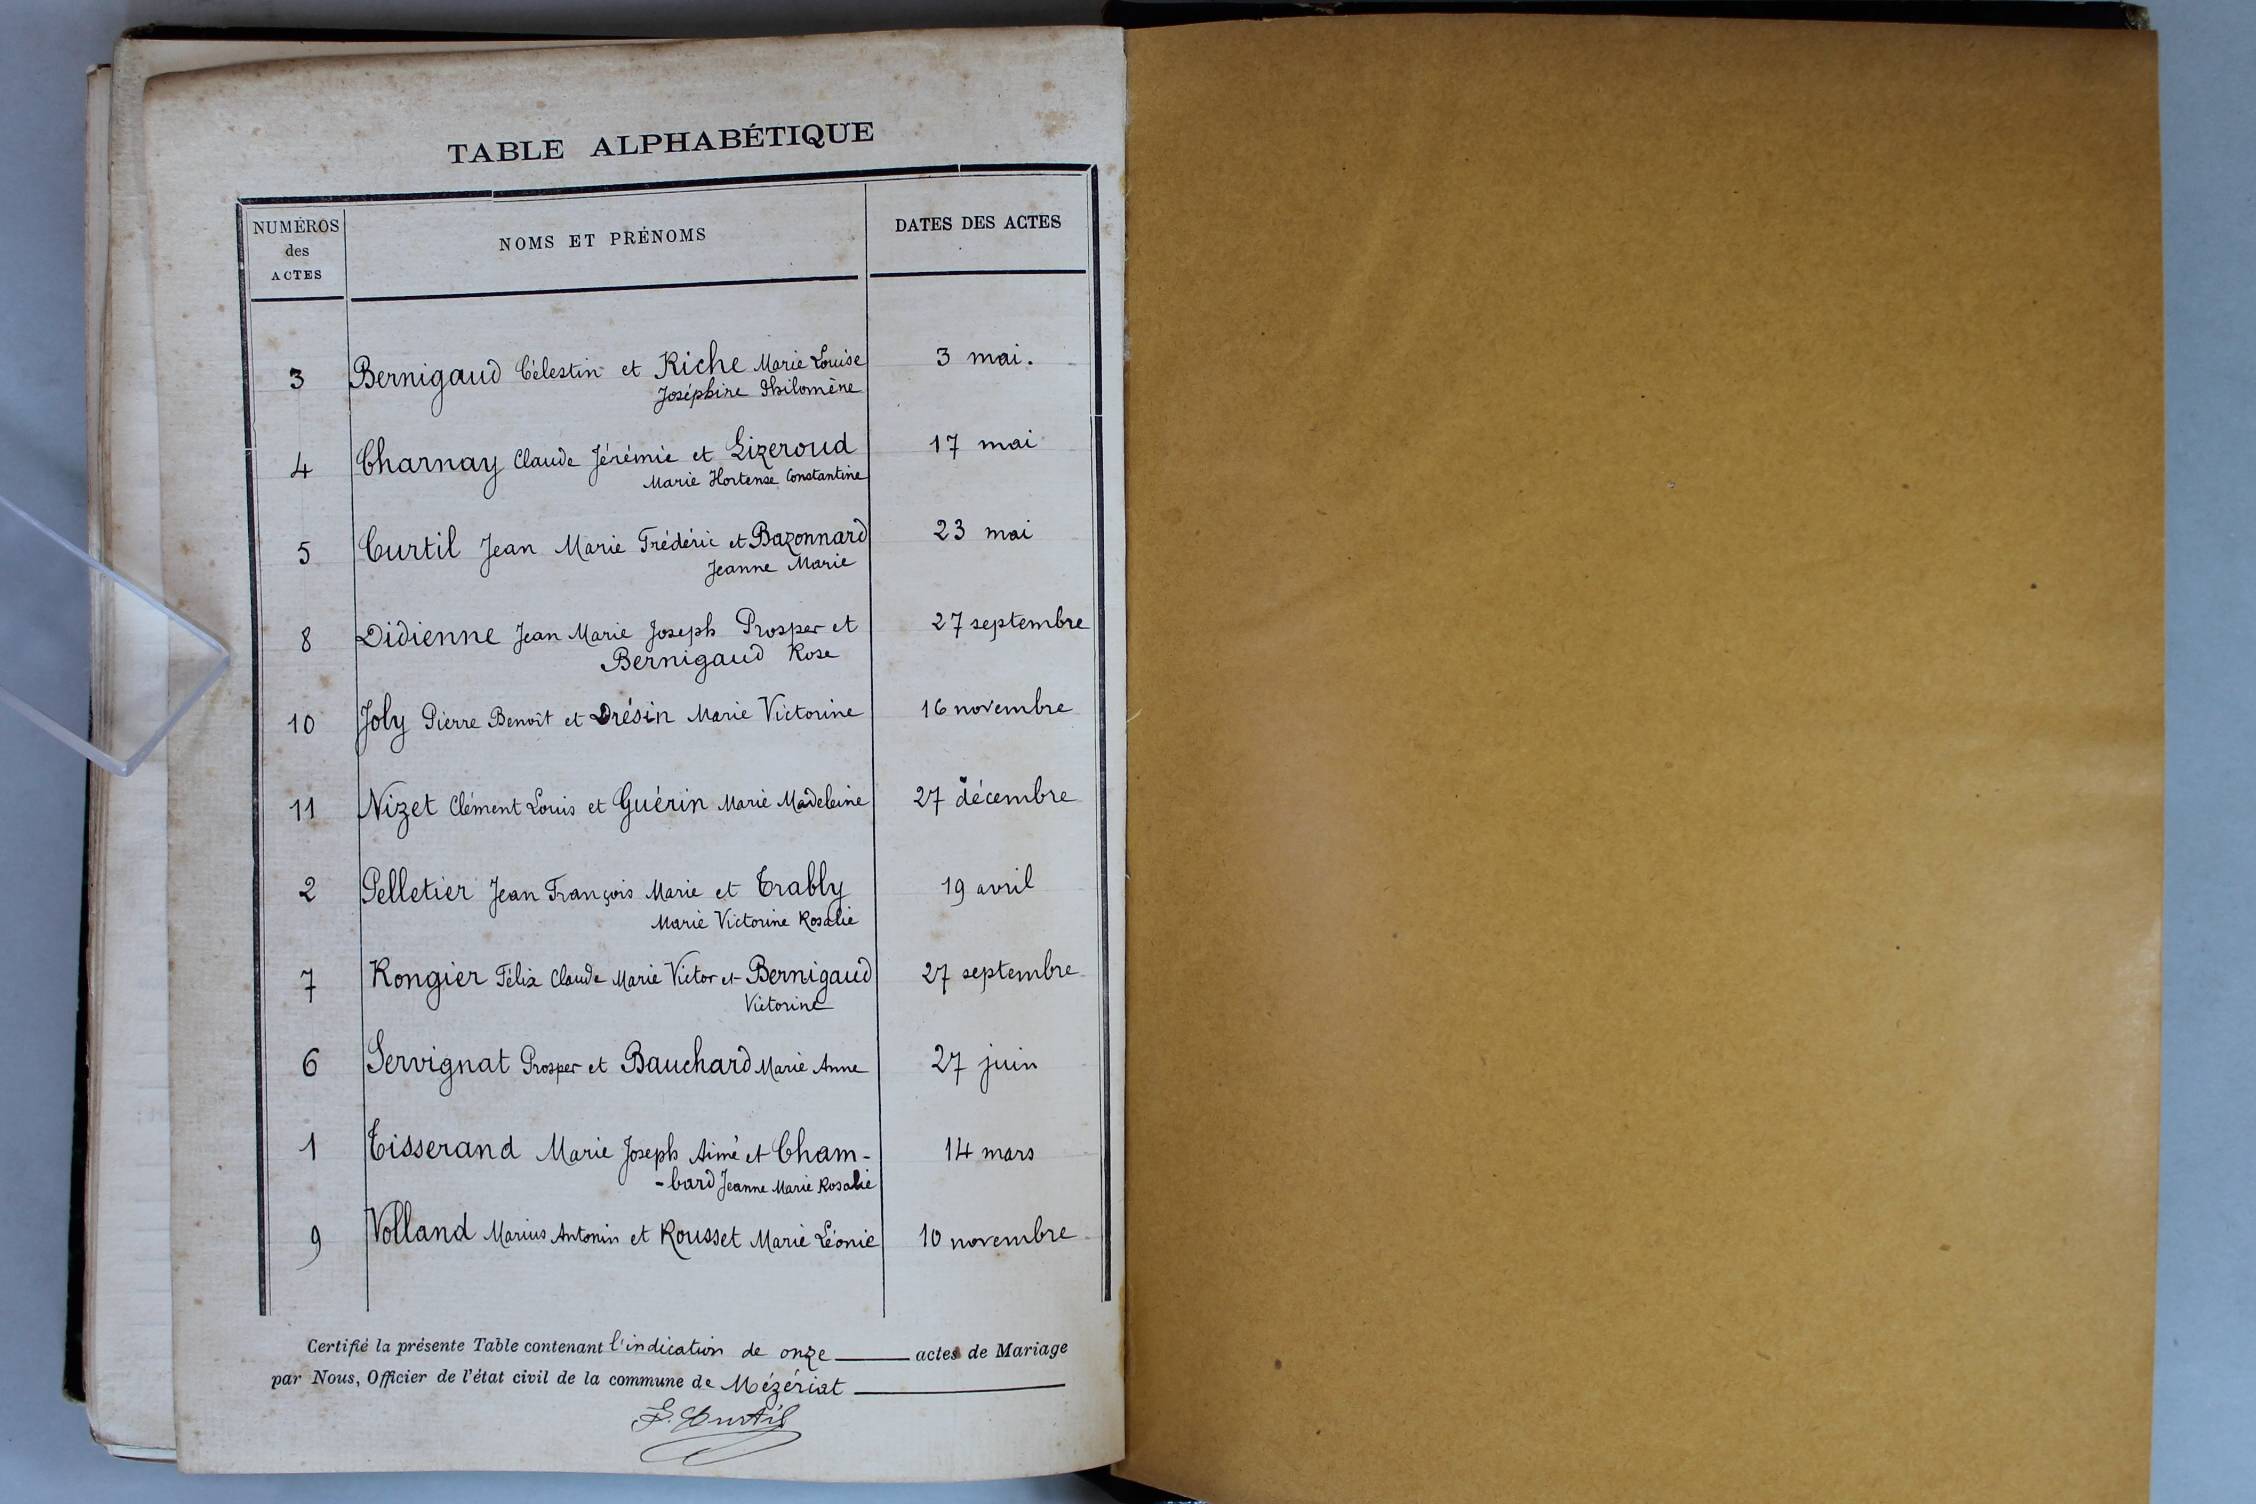 TABLE ALPHABÉTIQUE
NUMÉROS des ACTES | NOMS ET PRÉNOMS | DATES DES ACTES
3 | Bernigaud Célestin et Riche Marie Louise | 3 mai.
Joséphine Philomène
4 | Charnay Claude Jérémie et Lizeroud | 17 mai
Marie Hortense Constantine
5 | Curtil Jean Marie Frédéric et Bazonnard | 23 mai
Jeanne Marie
8 | Didienne Jean Marie Joseph Prosper et | 27 septembre
Bernigaud Rose
10 | Joly Pierre Benoît et Drésin Marie Victorine | 16 novembre
11 | Nizet Clément Louis et Guérin Marie Madeleine | 27 décembre
2 | Pelletier Jean François Marie et Trably | 19 avril
Marie Victorine Rosalie
7 | Rongier Félix Claude Marie Victor et Bernigaud | 27 septembre
Victorine
6 | Servignat Prosper et Bauchard Marie Anne | 27 juin
1 | Tisserand Marie Joseph Aimé et Cham- | 14 mars
-bard Jeanne Marie Rosalie
9 | Volland Marius Antonin et Rousset Marie Léonie | 10 novembre
Certifié la présente Table contenant l'indication de onze actes de Mariage
par Nous, Officier de l'état civil de la commune de Mézériat
F. Curtil